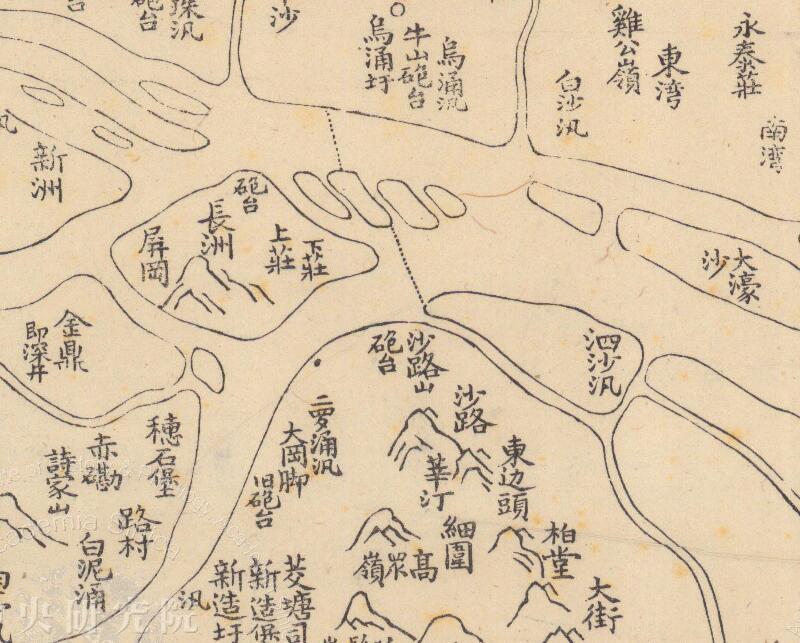 永泰莊
東湾
雞公嶺
白沙汛
南湾
烏涌汛
牛山砲台
烏涌圩
沙
汛
砲台
新洲
砲台
長洲
屏岡
上莊
下莊
大濠沙
泗沙汛
金鼎
即深井
沙路山
砲台
沙路
東边頭
莘汀
細圍
柏堂
大街
涌汛
大岡脚
旧砲台
穗石堡
赤磡
詩家山
路村
白泥涌
高
嶺
茭塘司
新造堡
新造圩
汛
央研究院